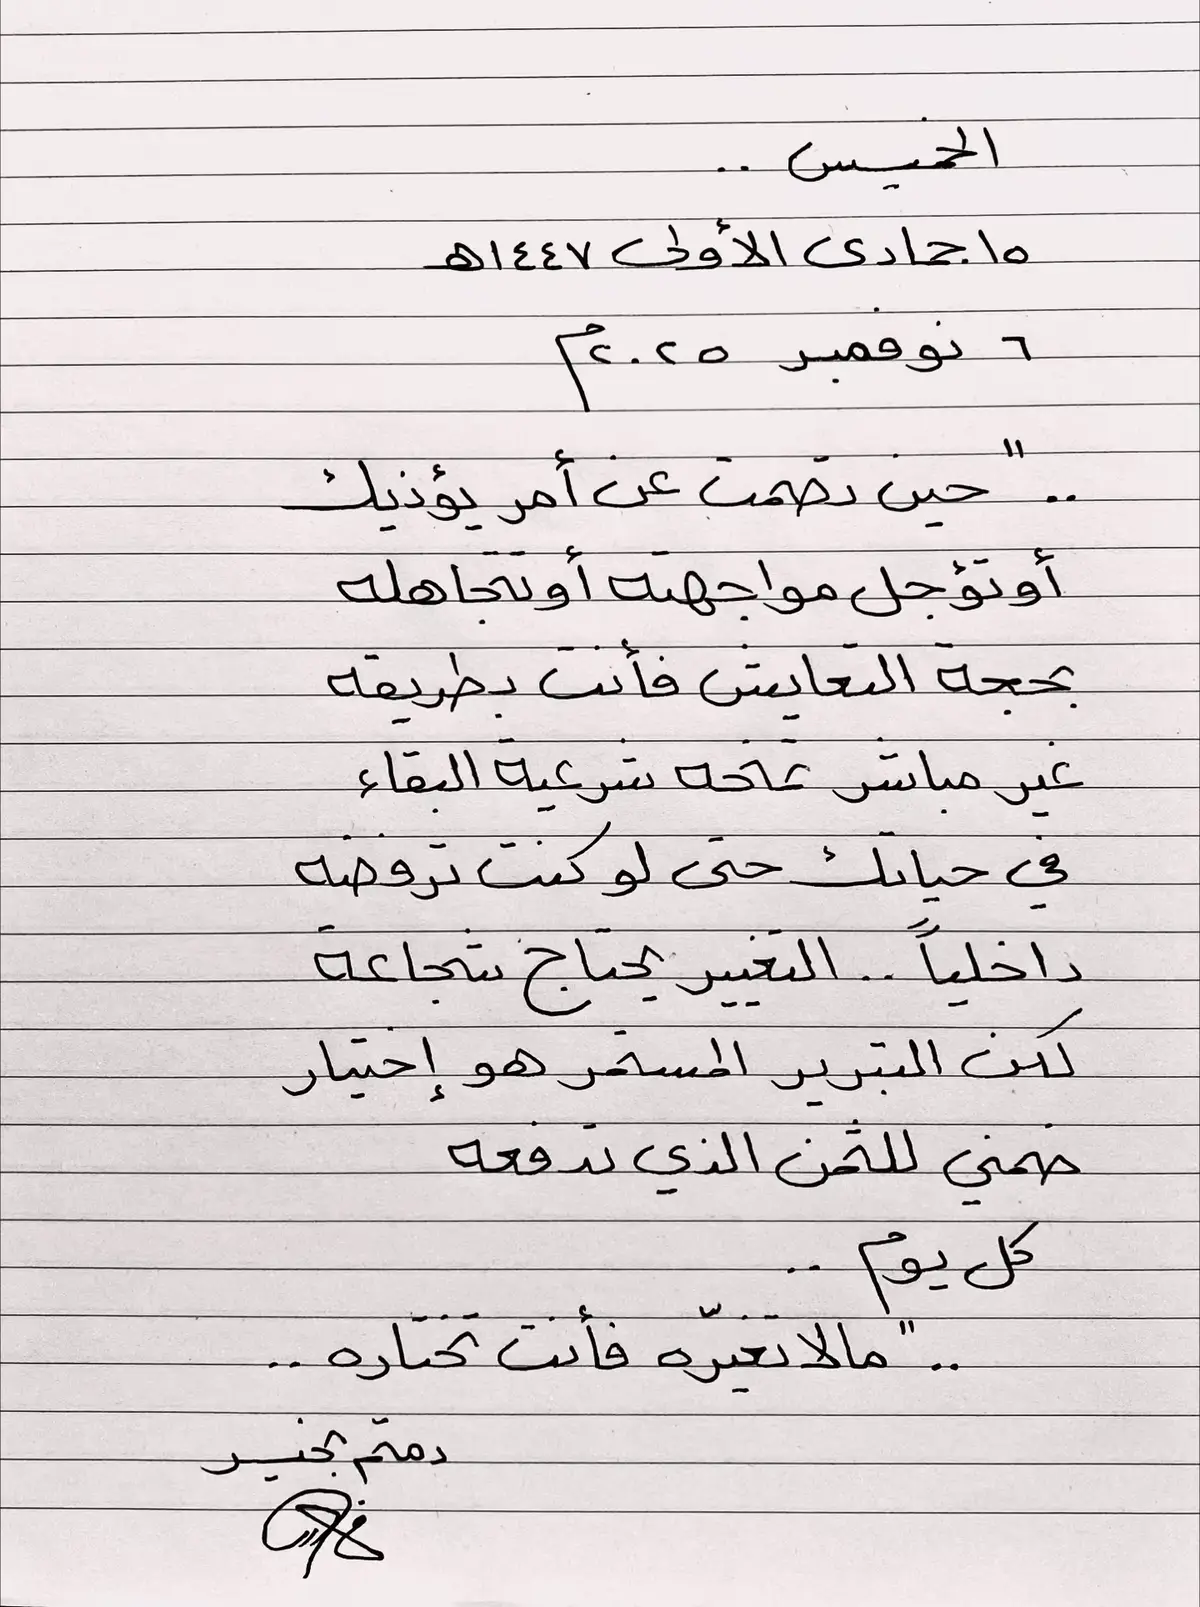 الخميس ..
١٥ جمادى الأولى ١٤٤٧هـ
٦ نوفمبر ٢٠٢٥م
.. "حين تصمت عن أمر يؤذيك
أو تؤجل مواجهته أو تتجاهله
بحجة التعايش فأنت بطريقه
غير مباشر تمنحه شرعية البقاء
في حياتك حتى لو كنت ترفضه
داخلياً .. التغيير يحتاج شجاعة
لكن التبرير المستمر هو إختيار
ضمني للثمن الذي تدفعه
كل يوم ..
.. "مالا تغيّره فأنت تختاره ..
دمتم بخير